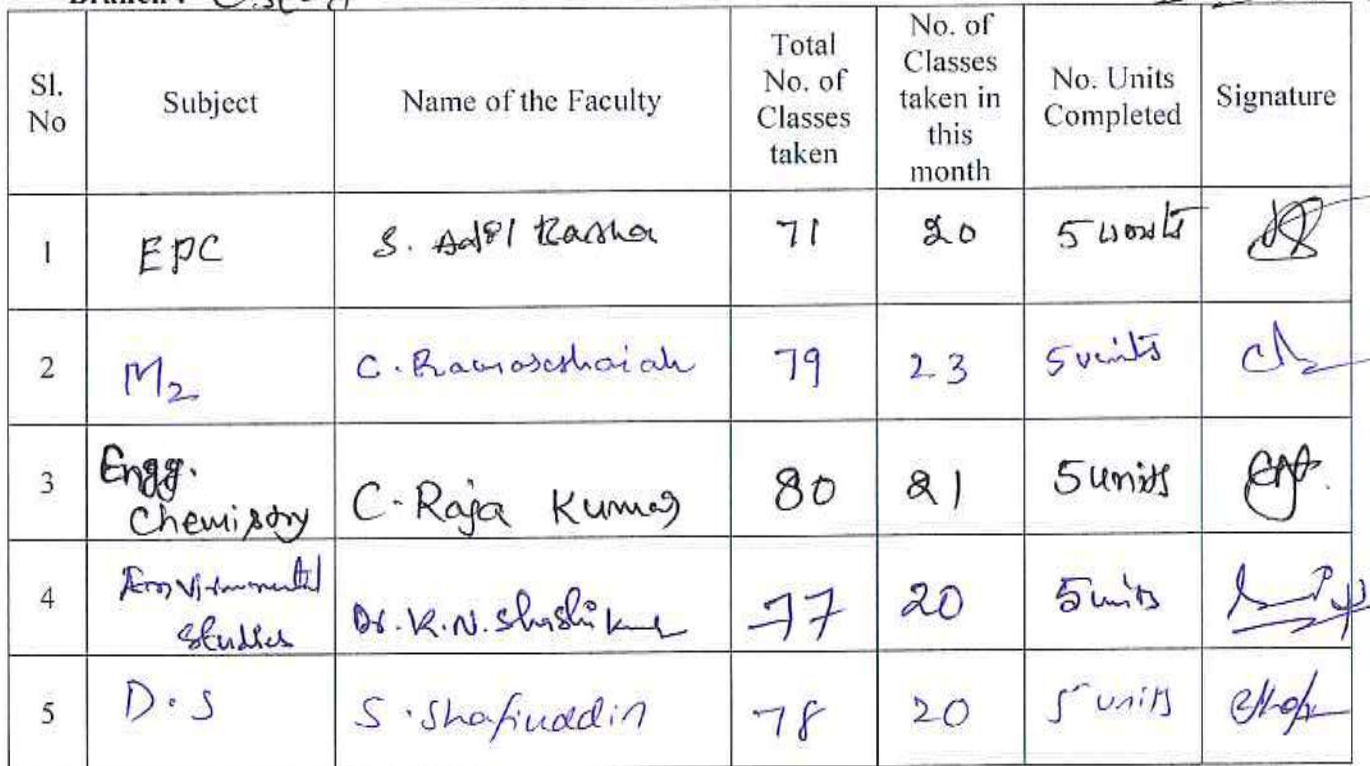 Branch :
Sl. No Subject Name of the Faculty Total No. of Classes taken No. of Classes taken in this month No. Units Completed Signature
1 EPC S. Adil Basha 71 20 5 units
2 M2 C. Ramaseshaiah 79 23 5 units
3 Engg. Chemistry C. Raja Kumar 80 21 5 units
4 Environmental Studies Dr. K.N. Shashi 77 20 5 units
5 D.S S. Shafiuddin 78 20 5 units